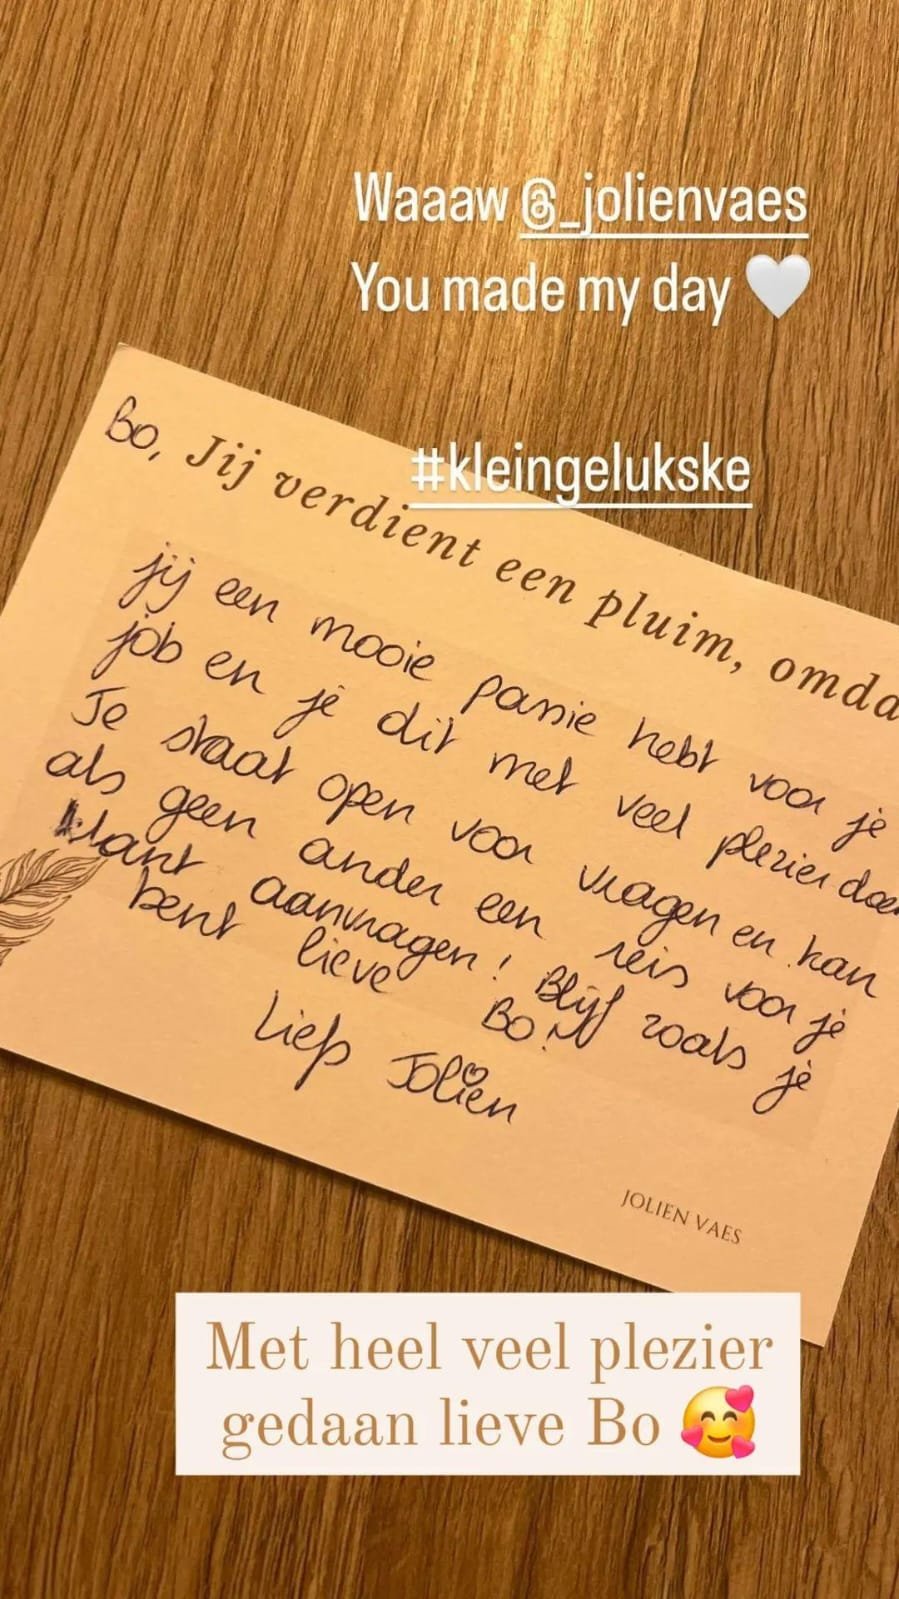 Waaaw @_jolienvaes
You made my day 🤍
#kleingelukske
Bo, Jij verdient een pluim, omda
jij een mooie passie hebt voor je
job en je dit met veel plezier doe
Je staat open voor vragen en kan
als geen ander een reis voor je
klant aanvragen! Blijf zoals je
bent lieve Bo!
Liefs Jolien
JOLIEN VAES
Met heel veel plezier
gedaan lieve Bo 🥰